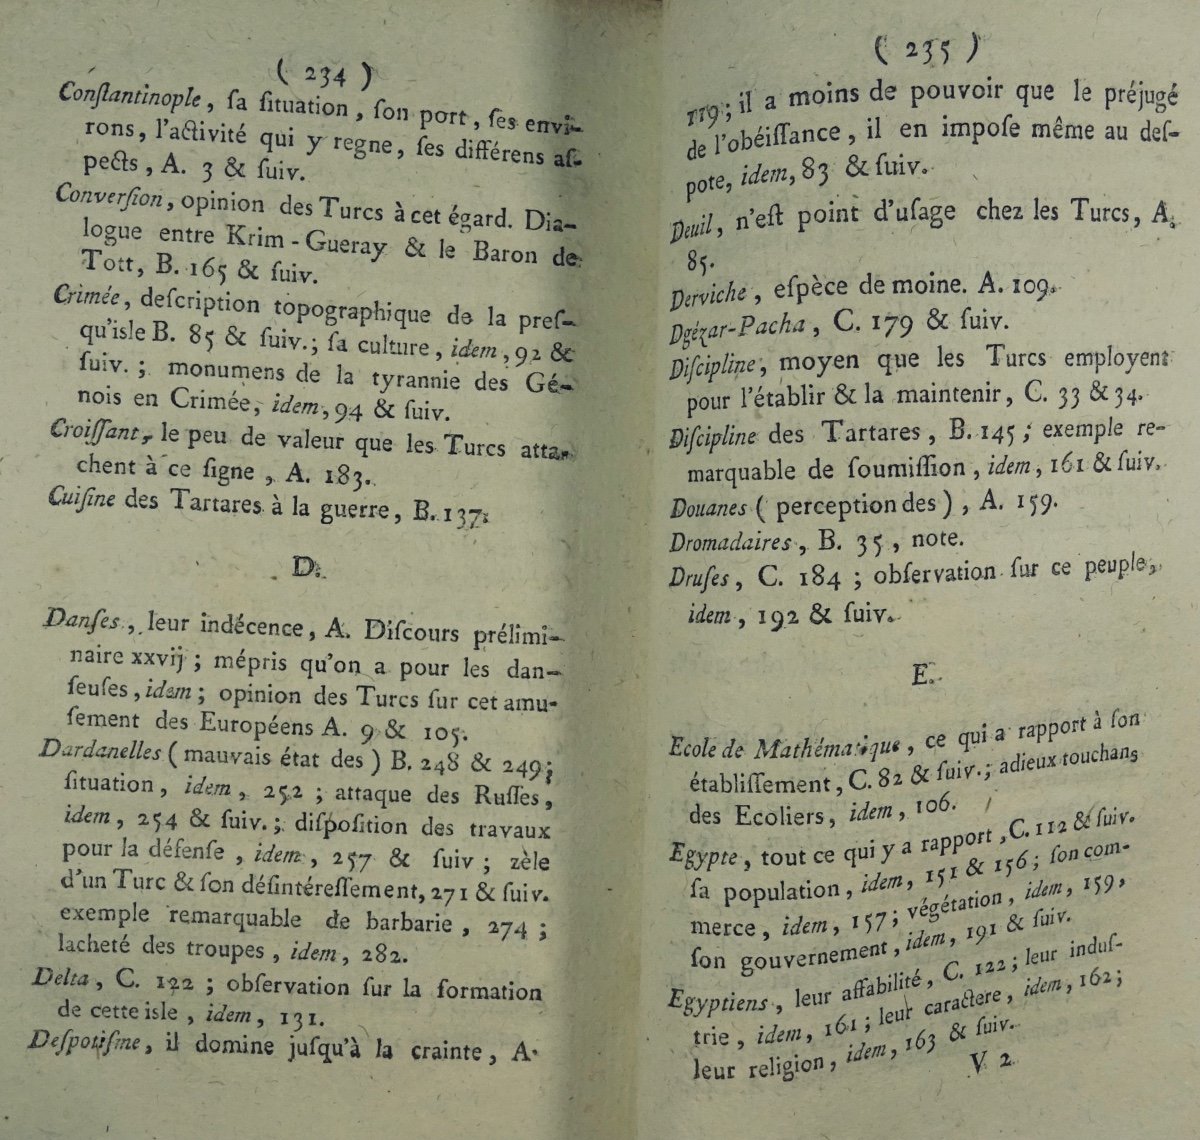 ( 234 )
Conſtantinople, ſa ſituation, ſon port, ſes envi-
rons, l'activité qui y regne, ſes différens aſ-
pects, A. 3 & ſuiv.
Converſion, opinion des Turcs à cet égard. Dia-
logue entre Krim-Gueray & le Baron de
Tott, B. 165 & ſuiv.
Crimée, deſcription topographique de la preſ-
qu'isle B. 85 & ſuiv.; ſa culture, idem, 92 &
ſuiv.; monumens de la tyrannie des Gé-
nois en Crimée, idem, 94 & ſuiv.
Croiſſant, le peu de valeur que les Turcs atta-
chent à ce ſigne, A. 183.
Cuiſine des Tartares à la guerre, B. 137.
D.
Danſes, leur indécence, A. Diſcours prélimi-
naire xxvij; mépris qu'on a pour les dan-
ſeuſes, idem; opinion des Turcs ſur cet amu-
ſement des Européens A. 9 & 105.
Dardanelles (mauvais état des) B. 248 & 249;
ſituation, idem, 252; attaque des Ruſſes,
idem, 254 & ſuiv.; diſpoſition des travaux
pour la défenſe, idem, 257 & ſuiv; zèle
d'un Turc & ſon déſintéreſſement, 271 & ſuiv.
exemple remarquable de barbarie, 274;
lacheté des troupes, idem, 282.
Delta, C. 122; obſervation ſur la formation
de cette isle, idem, 131.
Deſpotiſme, il domine juſqu'à la crainte, A.
( 235 )
119; il a moins de pouvoir que le préjugé
de l'obéiſſance, il en impoſe même au deſ-
pote, idem, 83 & ſuiv.
Deuil, n'eſt point d'uſage chez les Turcs, A.
85.
Derviche, eſpèce de moine. A. 109.
Dgézar-Pacha, C. 179 & ſuiv.
Diſcipline, moyen que les Turcs employent
pour l'établir & la maintenir, C. 33 & 34.
Diſcipline des Tartares, B. 145; exemple re-
marquable de ſoumiſſion, idem, 161 & ſuiv.
Douanes (perception des), A. 159.
Dromadaires, B. 35, note.
Druſes, C. 184; obſervation ſur ce peuple,
idem, 192 & ſuiv.
E.
Ecole de Mathématique, ce qui a rapport à ſon
établiſſement, C. 82 & ſuiv.; adieux touchans
des Ecoliers, idem, 106.
Egypte, tout ce qui y a rapport, C. 112 & ſuiv.
ſa population, idem, 151 & 156; ſon com-
merce, idem, 157; végétation, idem, 159,
ſon gouvernement, idem, 191 & ſuiv.
Egyptiens, leur affabilité, C. 122; leur induſ-
trie, idem, 161; leur caractere, idem, 162;
leur religion, idem, 163 & ſuiv.
V 2